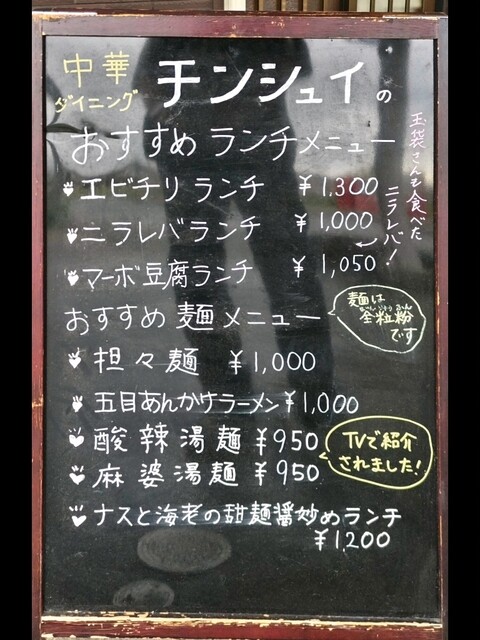 中華
ダイニング
チンシュイの
おすすめ ランチメニュー
エビチリ ランチ ¥1,300
ニラレバ ランチ ¥1,000
マーボ豆腐ランチ ¥1,050
玉袋さんも食べた
ニラレバ!
おすすめ 麺 メニュー
麺は
ぜんりゅうふん
全粒粉
です
担々麺 ¥1,000
五目あんかけラーメン ¥1,000
酸辣湯麺 ¥950
麻婆湯麺 ¥950
TVで紹介
されました!
ナスと海老の甜麺醤炒めランチ
¥1,200